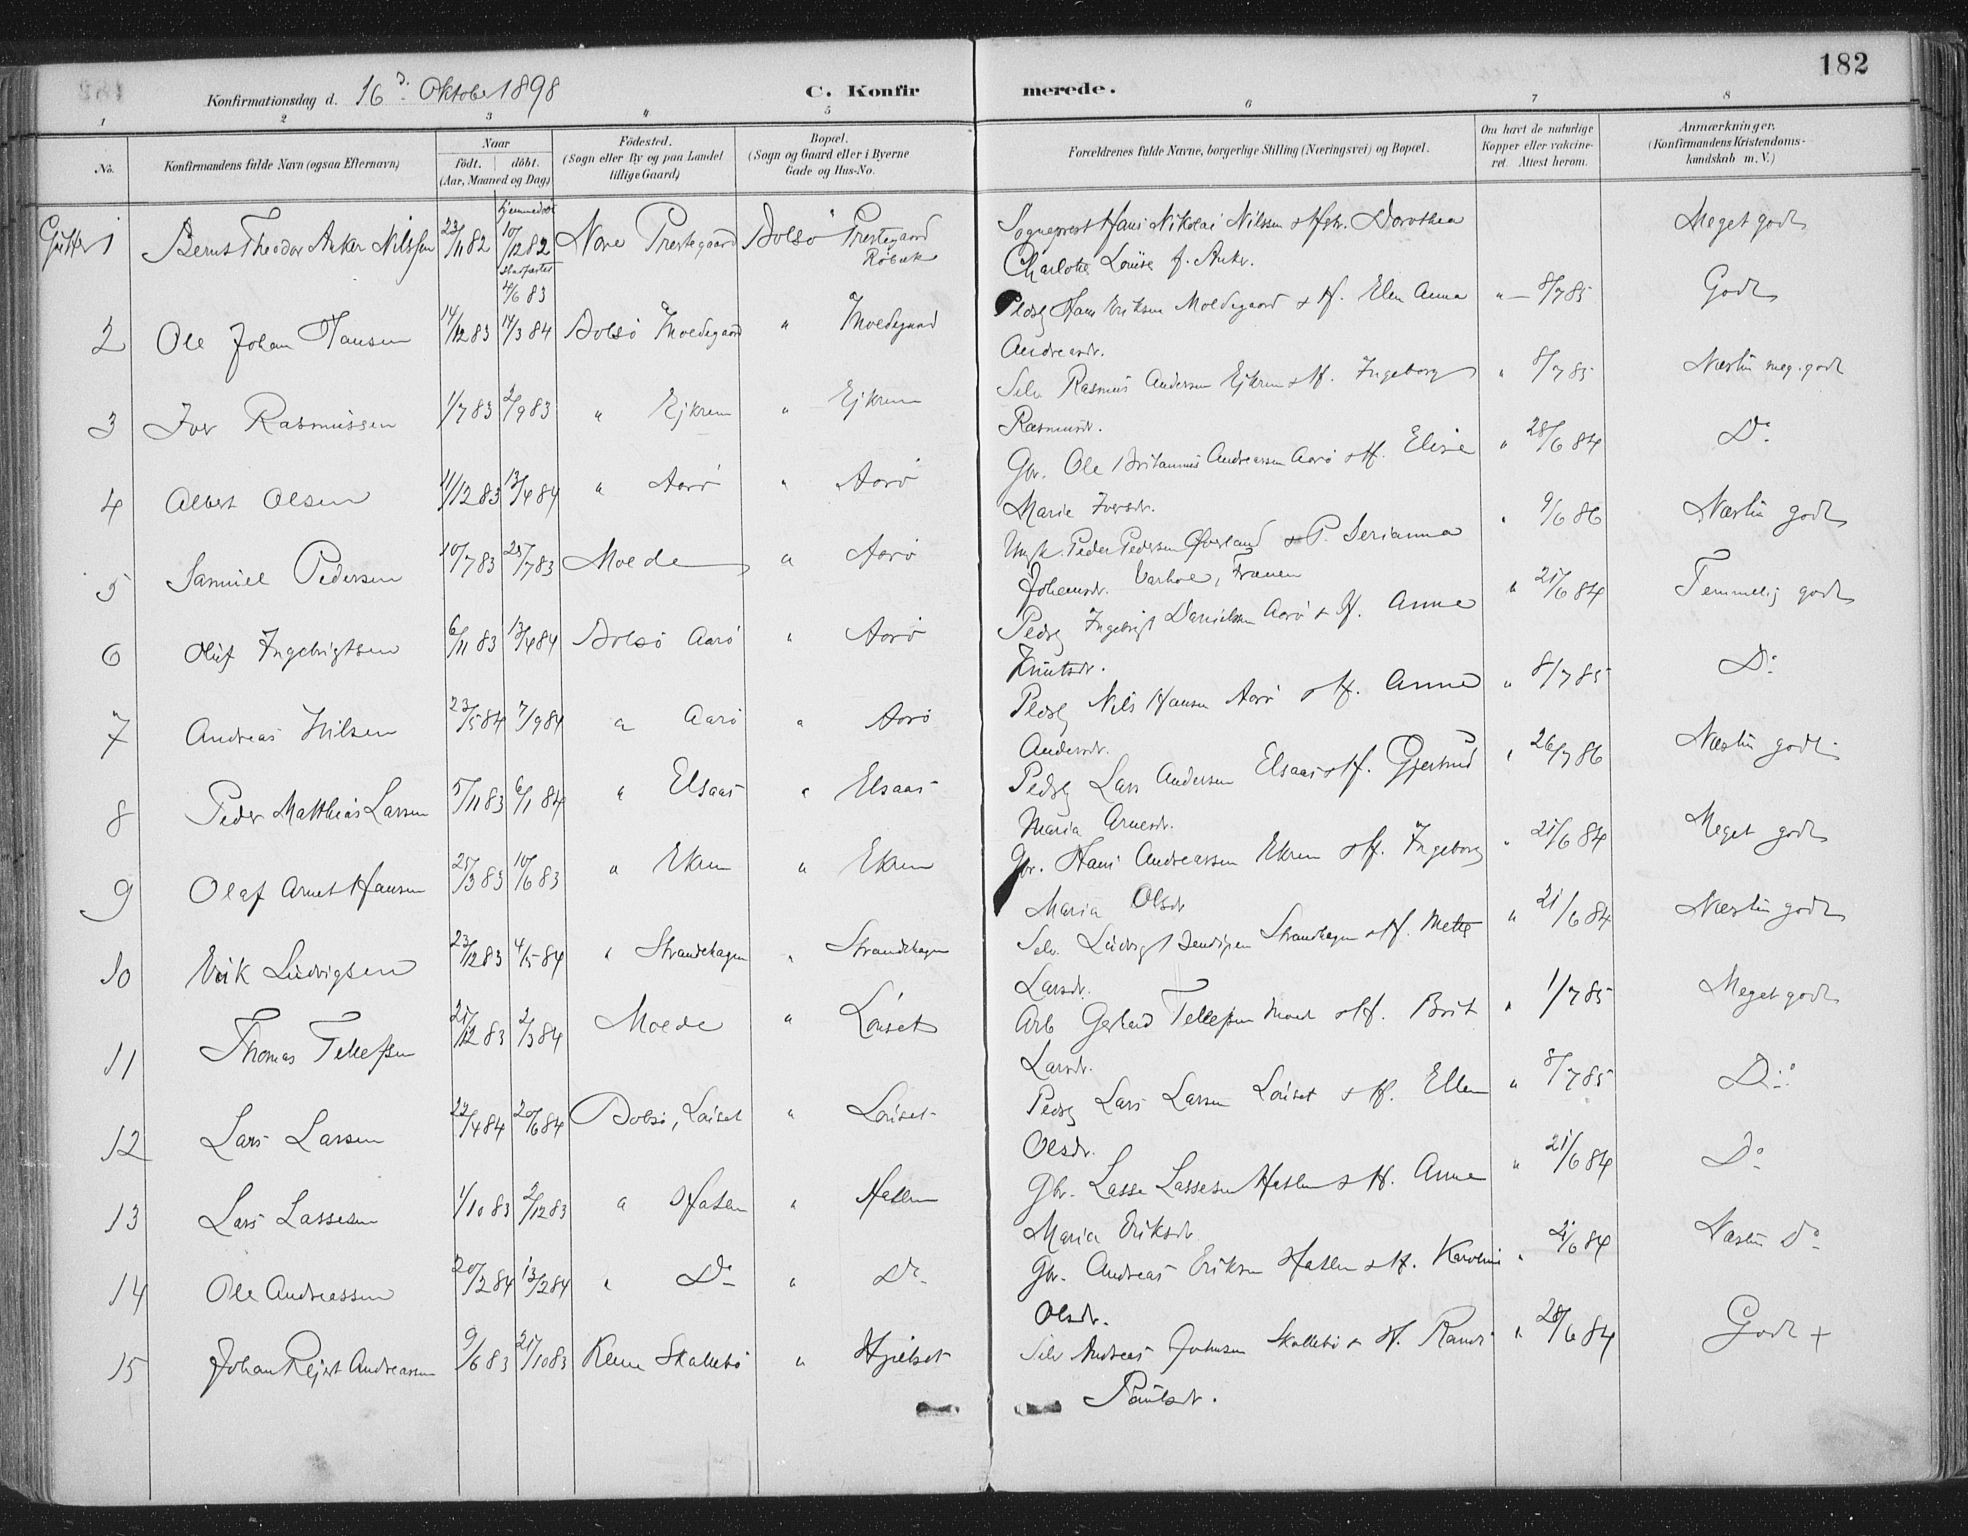 182
Konfirmationsdag d. 16d. Oktober 1898 C. Konfirmerede.
1 2 3 4 5 6 7 8
No. Konfirmandens fulde Navn (ogsaa Efternavn) Naar født. døbt. (Aar, Maaned og Dag) Fødested. (Sogn eller By og paa Landet tillige Gaard) Bopæl. (Sogn og Gaard eller i Byerne Gade og Hus-No. Forældrenes fulde Navne, borgerlige Stilling (Næringsvei) og Bopæl. Om havt de naturlige Kopper eller vakcineret. Attest herom. Anmærkninger. (Konfirmandens Kristendomskundskab m. V.)
Gutter 1 Bernt Theodor Anker Nilssen 23/11 82 hjemmedøbt 10/12 82 4/6 83 Prestegaard Bolsø Prestegaard Røbæk Sogneprest Hans Nikolai Nilssen & Hstr. Dorothea Meget godt
Charlotte Louise f. Anker.
2 Ole Johan Hansen 14/12 83 14/3 84 Bolsø Moldegaard " Moldegaard Pldsg Hans Eriksen Moldegaard & H. Elen Anna " 8/7 85 Godt
Andreasdr.
3 Iver Rasmussen 1/7 83 2/9 83 " Ejkrem " Ejkrem Selv. Rasmus Andersen Ejkrem & H. Ingeborg " 8/7 85 Næsten meg. godt
Rasmusdr.
4 Albert Olsen 11/12 83 13/4 84 " Aarø " Aarø Gbr. Ole Andreassen Aarø & H. Elise " 28/6 84 Do
Marie Iversdr.
5 Samuel Pedersen 10/7 83 25/7 83 Molde " Aarø Peder Pedersen Øverland & P. Serianna " 9/6 86 Næsten godt
Johansdr. Varhol, Frænen
6 Oluf Ingebrigtsen 6/11 83 13/4 84 Bolsø Aarø " Aarø Pldsg Ingebrigt Danielsen Aarø & H. Anne " 21/6 84 Temmelig godt
Knutsdr.
7 Andreas Nilsen 23/5 84 7/9 84 " Aarø " Aarø Pldsg Nils Hansen Aarø & H. Anne " 8/7 85 Do
Andersdr.
8 Peder Matthias Larsen 5/11 83 6/1 84 " Elsaas " Elsaas Pldsg Lars Andersen Elsaas & H. Gjertrud " 26/7 86 Næsten godt
Maria Arnesdr.
9 Olaf Arnet Hansen 25/3 83 10/6 83 " Ekrem " Ekrem Gbr. Hans Andreassen Ekrem & H. Ingeborg " 21/6 84 Meget godt
Maria Olsdr
10 Erik Ludvigsen 23/12 83 4/5 84 " Strandehagen " Strandehagen Selv. Ludvigt Strandhagen & H. Mette " 21/6 84 Næsten godt
Larsdr.
11 Thomas Tellefsen 21/12 83 2/3 84 Molde " Lønset Arb Gerhard Tellefsen & H. Brit " 1/7 85 Meget godt
Larsdr.
12 Lars Larsen 22/4 84 20/6 84 Bolsø, Lønset " Lønset Pldsg Lars Larsen Lønset & H. Ellen " 8/7 85 Do
Olsdr.
13 Lars Lassesen 1/10 83 2/12 83 " Hatlen " Hatlen Gbr. Lasse Lassesen Hatlen & H. Anne " 21/6 84 Do
Maria Eriksdr
14 Ole Andreassen 20/2 84 13/2 84 " Do " Do Gbr. Andreas Eriksen Hatlen & H. Karoline " 21/6 84 Næsten Do
Olsdr.
15 Johan Andreassen 9/6 83 21/10 83 Kleve Skallebø " Hjelset Selv Andreas Johnsen Skallebø & H. Randi " 28/6 84 Godt +
Paulsdr.